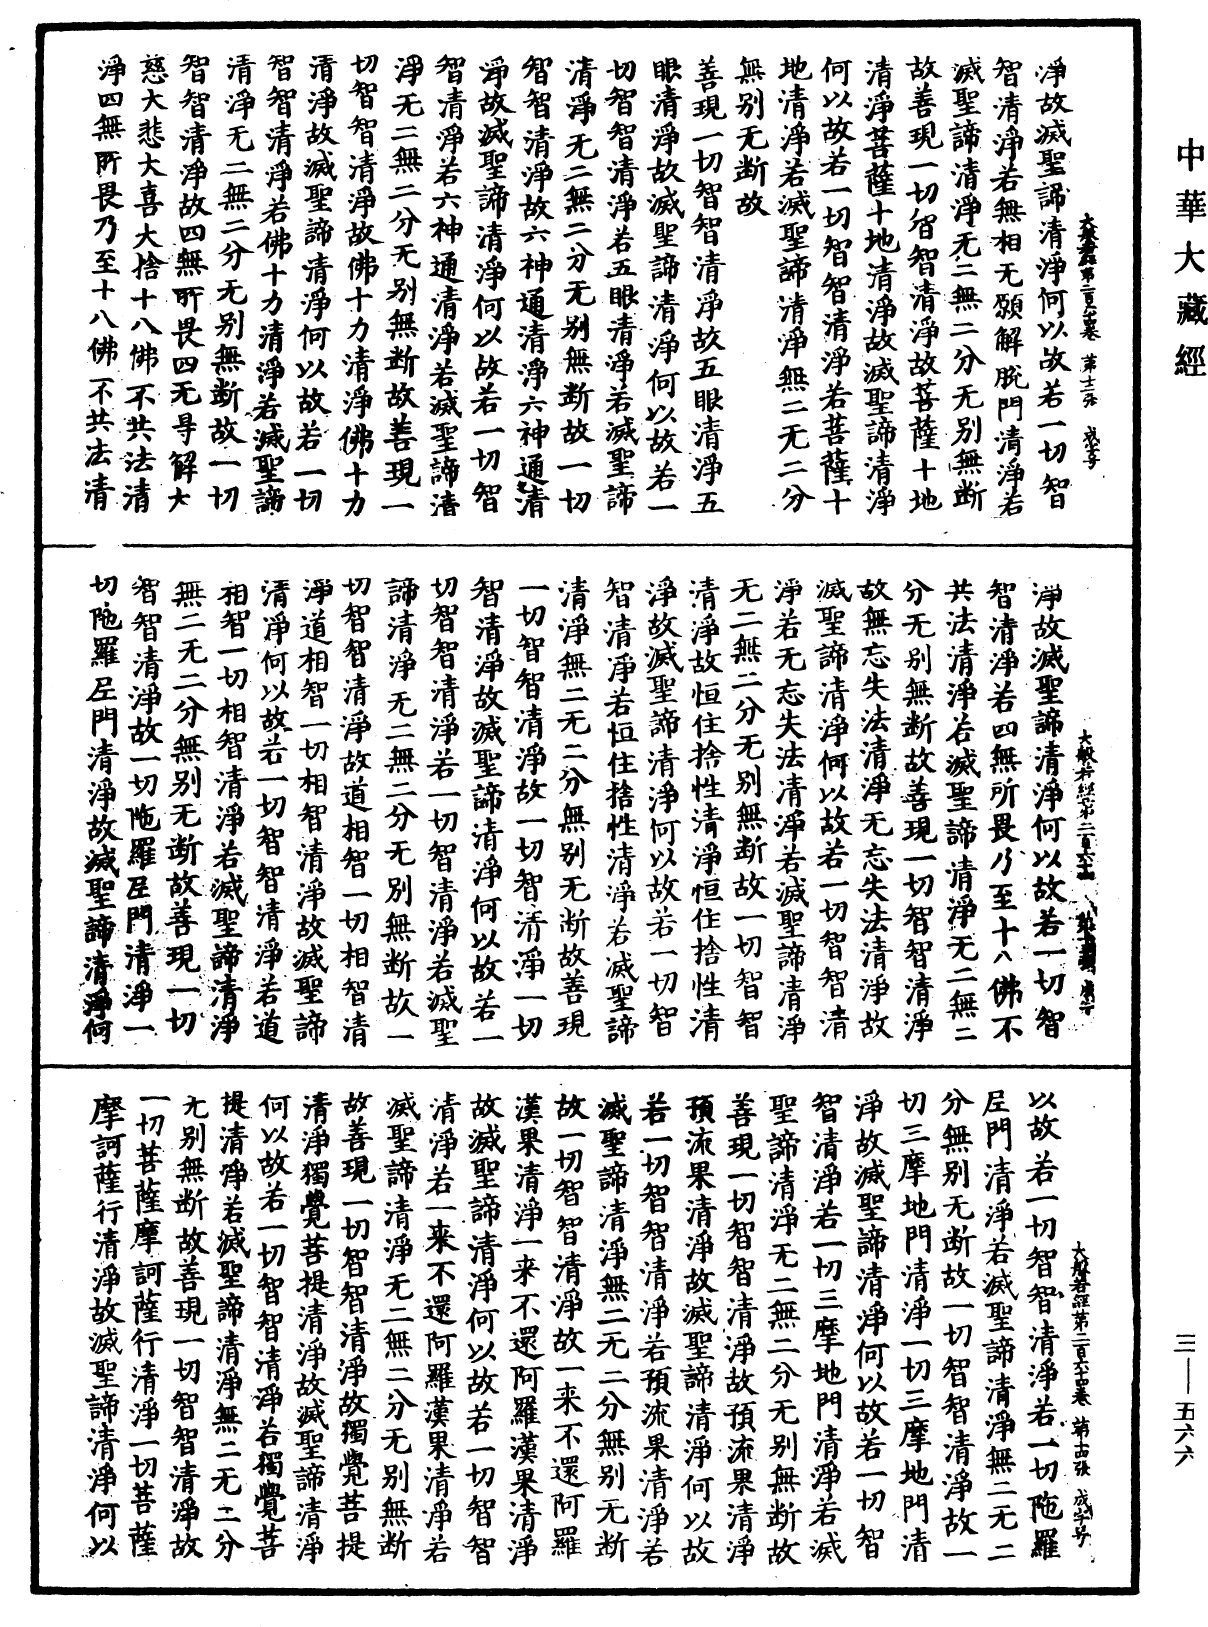 中華大藏經
淨故滅聖諦清淨何以故若一切智
智清淨若無相无願解脫門清淨若
滅聖諦清淨无二無二分无別無斷
故善現一切智智清淨故菩薩十地
清淨菩薩十地清淨故滅聖諦清淨
何以故若一切智智清淨若菩薩十
地清淨若滅聖諦清淨無二无二分
無别无斷故
善現一切智智清淨故五眼清淨五
眼清淨故滅聖諦清淨何以故若一
切智智清淨若五眼清淨若滅聖諦
清淨无二無二分无别無斷故一切
智智清淨故六神通清淨六神通清
淨故滅聖諦清淨何以故若一切智
智清淨若六神通清淨若滅聖諦清
淨无二無二分无别無斷故善現一
切智智清淨故佛十力清淨佛十力
清淨故滅聖諦清淨何以故若一切
智智清淨若佛十力清淨若滅聖諦
清淨无二無二分无别無斷故一切
智智清淨故四無所畏四无㝵解大
慈大悲大喜大捨十八佛不共法清
淨四無所畏乃至十八佛不共法清
淨故滅聖諦清淨何以故若一切智
智清淨若四無所畏乃至十八佛不
共法清淨若滅聖諦清淨无二無二
分无别無斷故善現一切智智清淨
故無忘失法清淨无忘失法清淨故
滅聖諦清淨何以故若一切智智清
淨若无忘失法清淨若滅聖諦清淨
无二無二分无别無斷故一切智智
清淨故恒住捨性清淨恒住捨性清
淨故滅聖諦清淨何以故若一切智
智清淨若恒住捨性清淨若滅聖諦
清淨無二无二分無别无斷故善現
一切智智清淨故一切智清淨一切
智清淨故滅聖諦清淨何以故若一
切智智清淨若一切智清淨若滅聖
諦清淨无二無二分无別無斷故一
切智智清淨故道相智一切相智清
淨道相智一切相智清淨故滅聖諦
清淨何以故若一切智智清淨若道
相智一切相智清淨若滅聖諦清淨
無二无二分無别无斷故善現一切
智智清淨故一切陁羅尼門清淨一
切陁羅尼門清淨故滅聖諦清淨何
以故若一切智智清淨若一切陁羅
尼門清淨若滅聖諦清淨無二无二
分無别无斷故一切智智清淨故一
切三摩地門清淨一切三摩地門清
淨故滅聖諦清淨何以故若一切智
智清淨若一切三摩地門清淨若滅
聖諦清淨无二無二分无别無斷故
善現一切智智清淨故預流果清淨
預流果清淨故滅聖諦清淨何以故
若一切智智清淨若預流果清淨若
滅聖諦清淨無二无二分無别无斷
故一切智智清淨故一来不還阿羅
漢果清淨一来不還阿羅漢果清淨
故滅聖諦清淨何以故若一切智智
清淨若一来不還阿羅漢果清淨若
滅聖諦清淨无二無二分无别無斷
故善現一切智智清淨故獨覺菩提
清淨獨覺菩提清淨故滅聖諦清淨
何以故若一切智智清淨若獨覺菩
提清淨若滅聖諦清淨無二无二分
无别無斷故善現一切智智清淨故
一切菩薩摩訶薩行清淨一切菩薩
摩訶薩行清淨故滅聖諦清淨何以
大般若經第二百六十四卷 第十四張 成字号
三—五六六